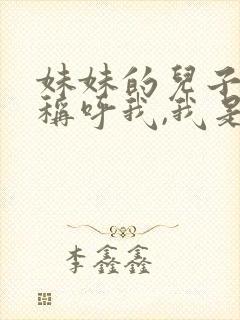 妹妹的兒子
稱呼我,我是
李鑫鑫